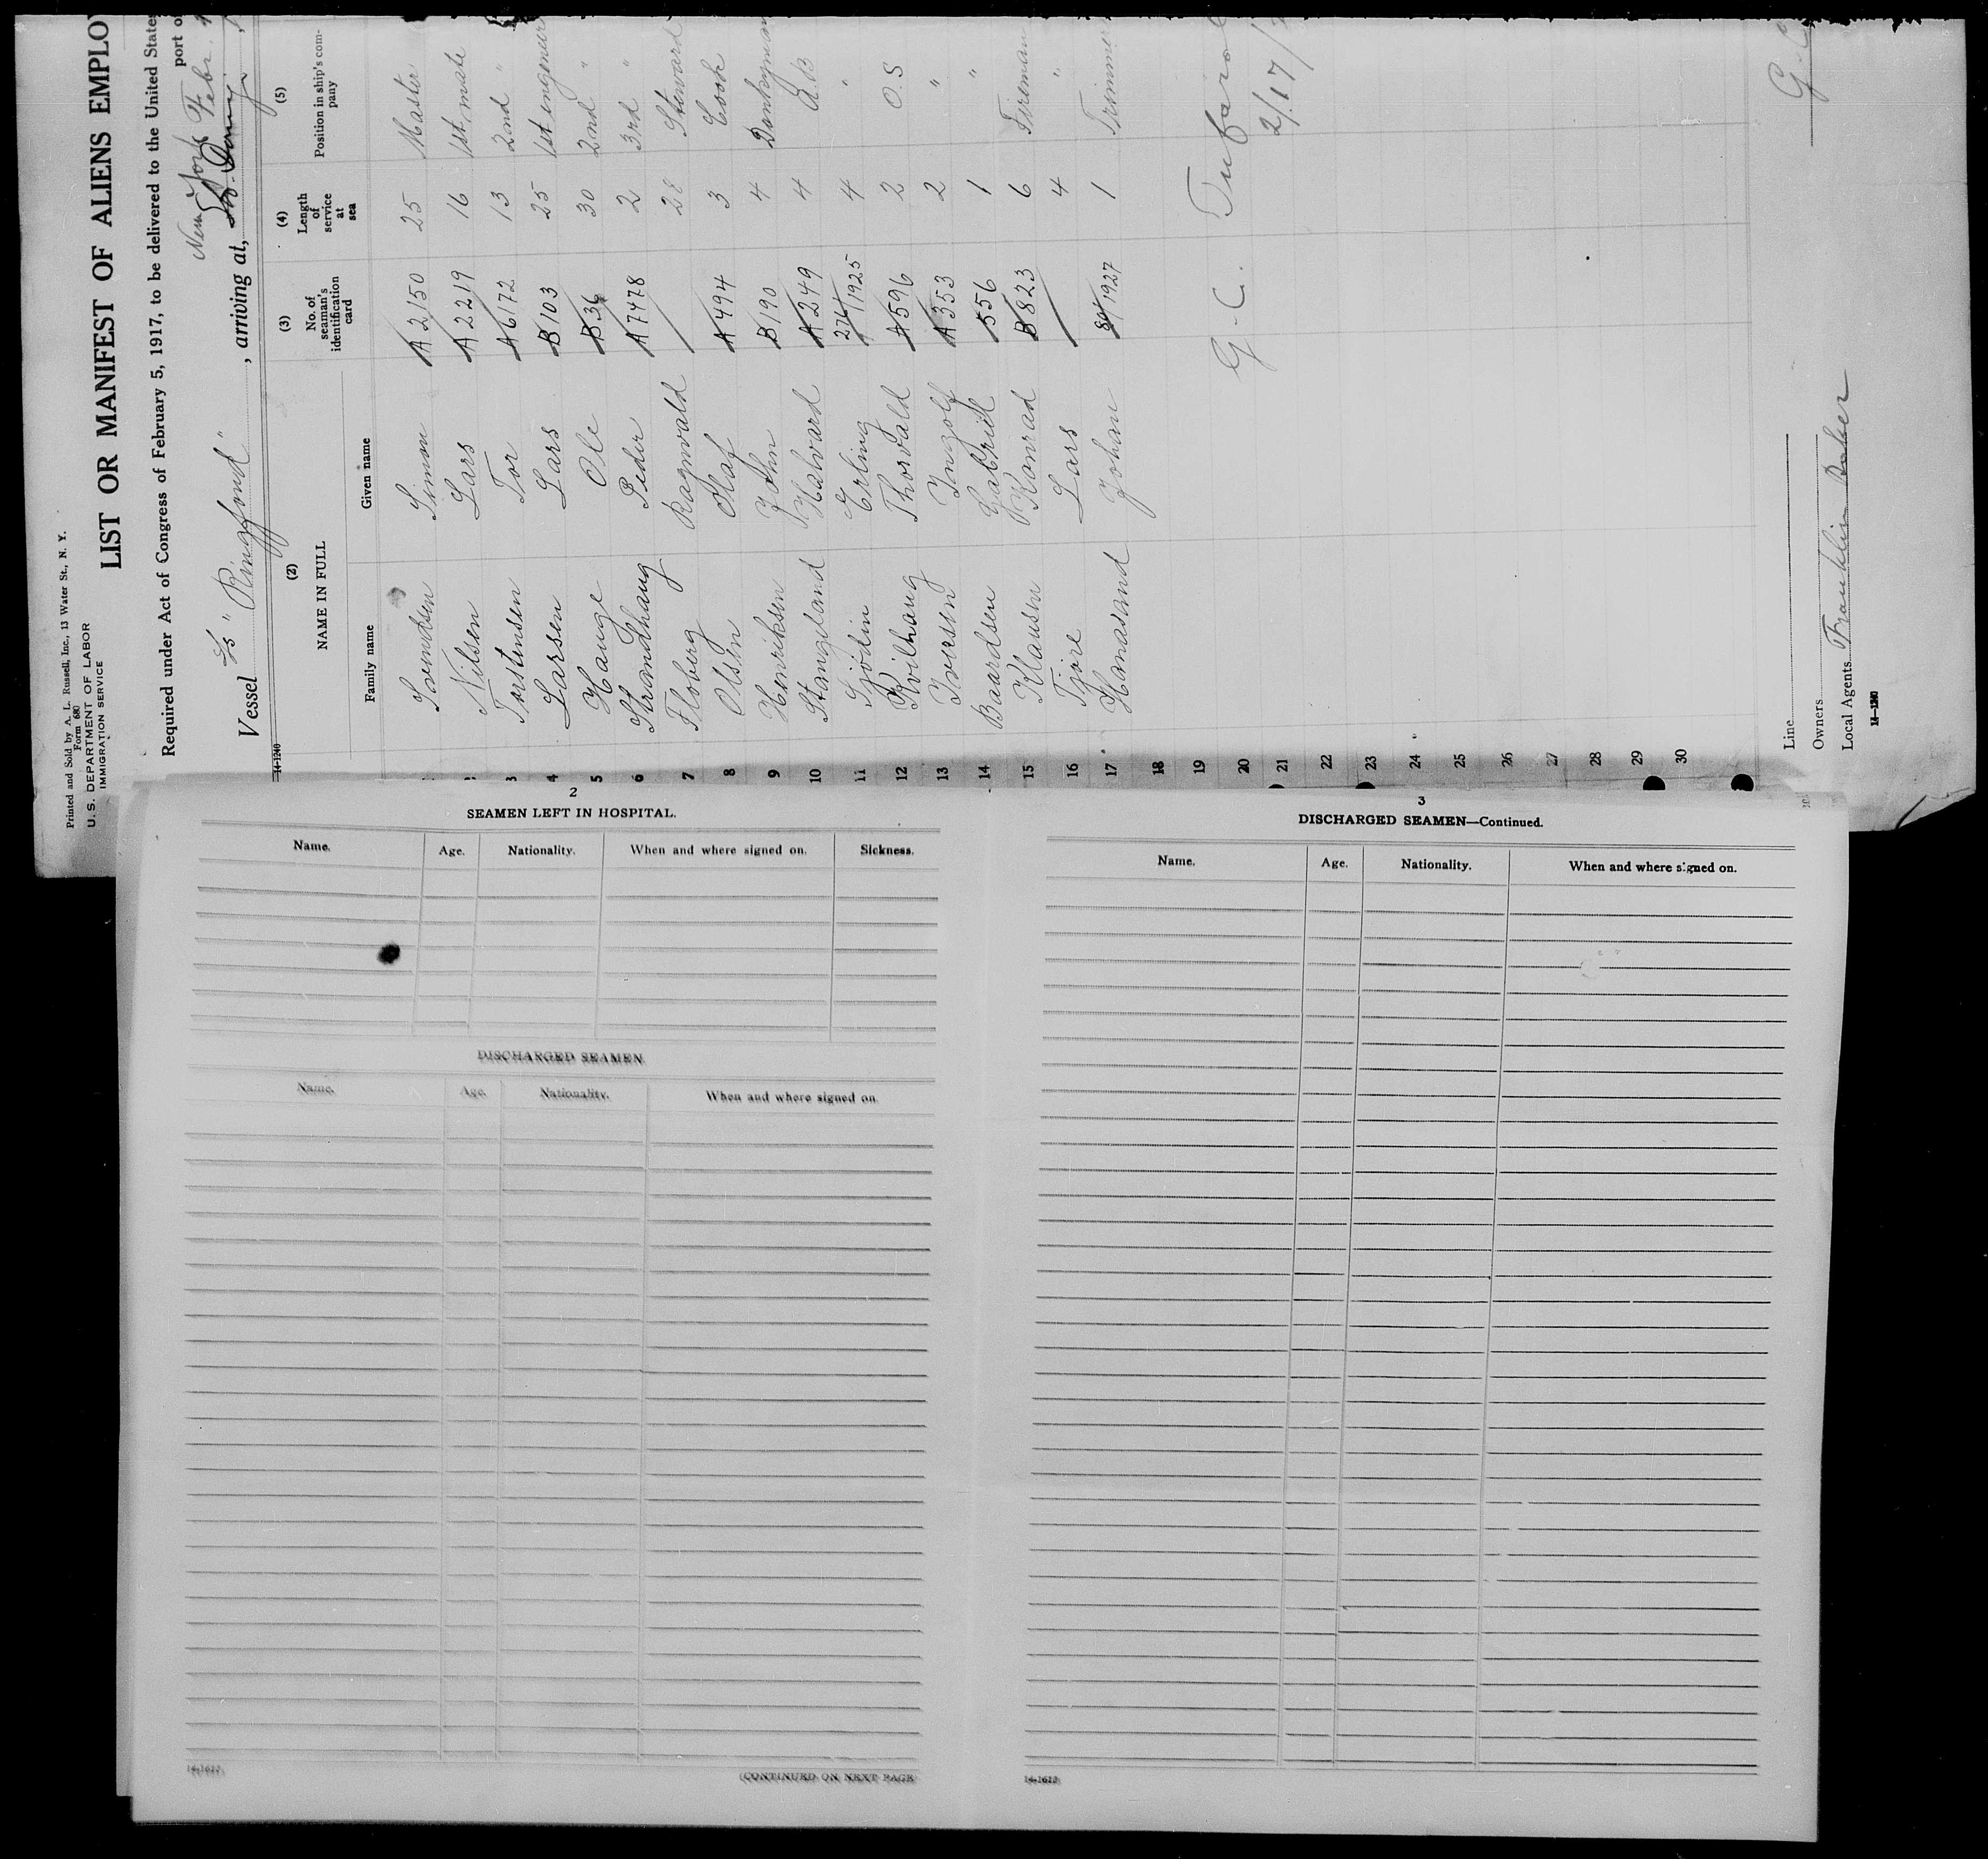 Printed and Sold by A. L. Russell, Inc., 13 Water St., N. Y.
Form 680
U. S. DEPARTMENT OF LABOR
IMMIGRATION SERVICE
LIST OR MANIFEST OF ALIENS EMPLO
Required under Act of Congress of February 5, 1917, to be delivered to the United States
port of
New York Febr.
Vessel S/S "Ringfond", arriving at,
14-1240
(2) (3) (4) (5)
NAME IN FULL No. of seaman's identification card Length of service at sea Position in ship's com-pany
Family name Given name
1 Simon A 2150 25 Master
2 Nilsen Lars A 2219 16 1st mate
3 Torstensen Tor A 6172 13 2nd "
4 Larsen Lars B 103 25 1st engineer
5 Hauge Ole B 36 30 2nd "
6 Strandhaug Peder A 7478 2 3rd "
7 Floberg Ragnvald 28 Steward
8 Olsen Olaf A 494 3 Cook
9 Henriksen John B 190 4 Donkeyman
10 Stangeland Halvard A 249 4 A.B
11 Sjödin Erling 274/1925 4 "
12 Kvilhaug Thorvald A 596 2 O.S
13 Iversen Ingolf A 353 2 "
14 Baardsen Gabriel 556 1 "
15 Klausen Konrad B 823 6 Fireman
16 Tjöre Lars 4 "
17 Hanasand Johan 80/1927 1 Trimmer
18
19
20 G. C.
21 2/17/
22
23
24
25
26
27
28
29
30
Line
Owners
Local Agents Franklin Baker
14-1240
G. C.
2
SEAMEN LEFT IN HOSPITAL.
Name. Age. Nationality. When and where signed on. Sickness.
DISCHARGED SEAMEN.
Name. Age. Nationality. When and where signed on.
14-1612
(CONTINUED ON NEXT PAGE
3
DISCHARGED SEAMEN—Continued.
Name. Age. Nationality. When and where signed on.
14-1612